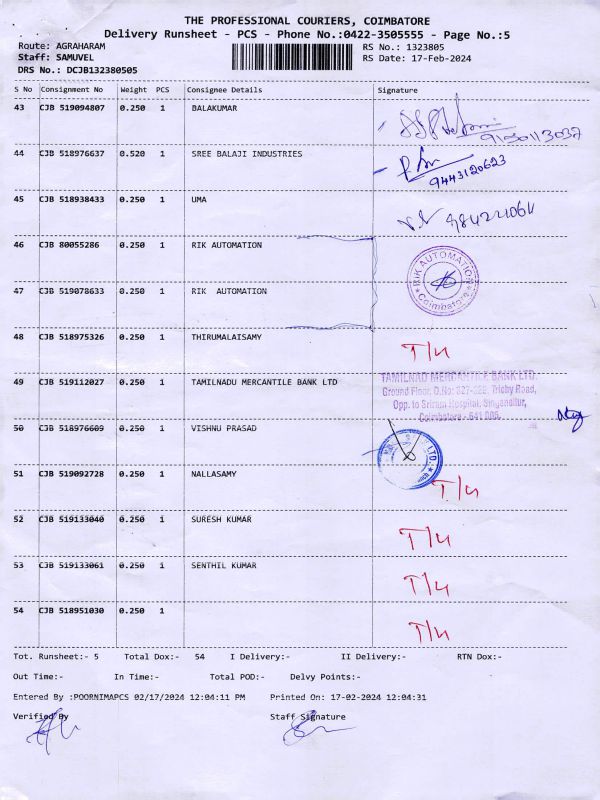 THE PROFESSIONAL COURIERS, COIMBATORE
Delivery Runsheet - PCS - Phone No.:0422-3505555 - Page No.:5
Route: AGRAHARAM RS No.: 1323805
Staff: SAMUVEL RS Date: 17-Feb-2024
DRS No.: DCJB132380505
S No Consignment No Weight PCS Consignee Details Signature
43 CJB 519094807 0.250 1 BALAKUMAR
44 CJB 518976637 0.520 1 SREE BALAJI INDUSTRIES
9443120623
45 CJB 518938433 0.250 1 UMA
46 CJB 80055286 0.250 1 RIK AUTOMATION
RIK AUTOMATION
Coimbatore
47 CJB 519078633 0.250 1 RIK AUTOMATION
48 CJB 518975326 0.250 1 THIRUMALAISAMY
49 CJB 519112027 0.250 1 TAMILNADU MERCANTILE BANK LTD
TAMILNAD MERCANTILE BANK LTD.
Ground Floor, D.No: Trichy Road,
Opp. to Sriram Hospital, Singanallur,
Coimbatore - 641 005.
50 CJB 518976609 0.250 1 VISHNU PRASAD
LTD.
51 CJB 519092728 0.250 1 NALLASAMY
52 CJB 519133040 0.250 1 SURESH KUMAR
53 CJB 519133061 0.250 1 SENTHIL KUMAR
54 CJB 518951030 0.250 1
Tot. Runsheet:- 5 Total Dox:- 54 I Delivery:- II Delivery:- RTN Dox:-
Out Time:- In Time:- Total POD:- Delvy Points:-
Entered By :POORNIMAPCS 02/17/2024 12:04:11 PM Printed On: 17-02-2024 12:04:31
Verified By Staff Signature